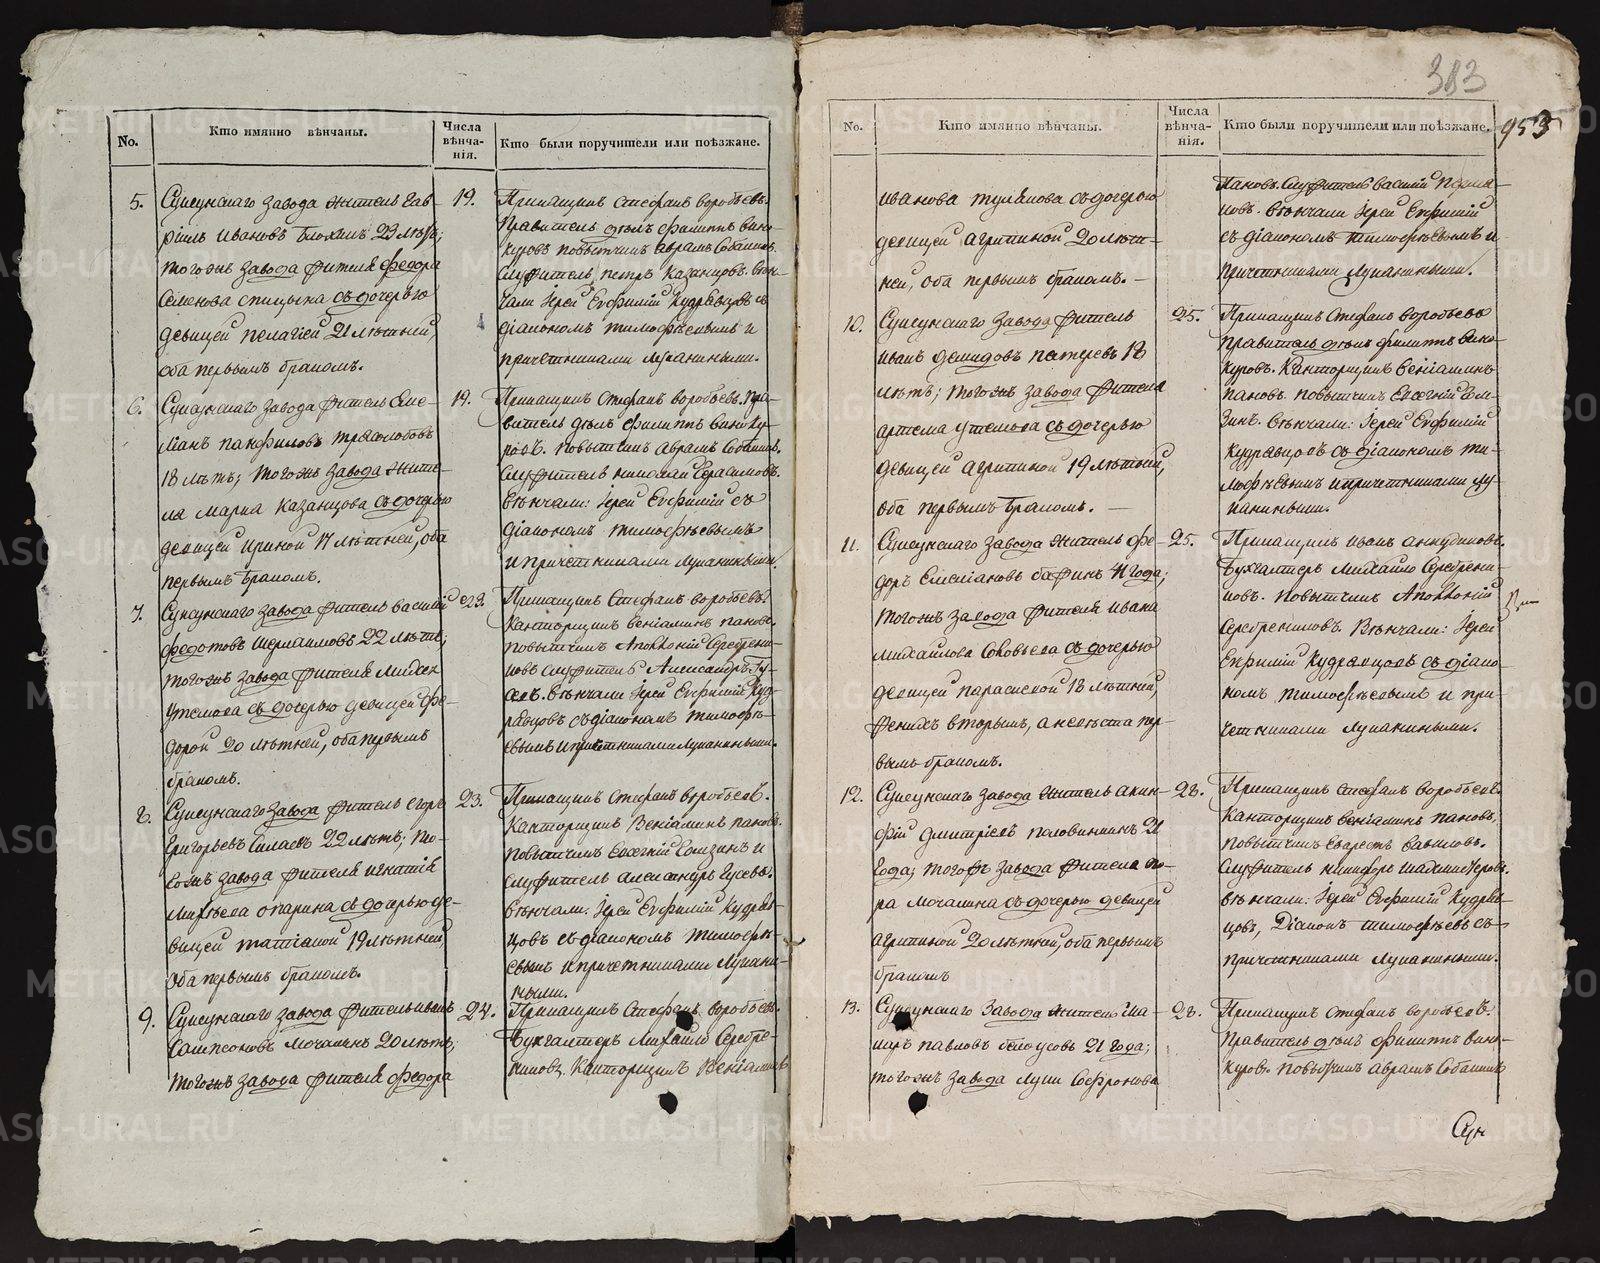 383
953
No.
Кто имянно вѣнчаны.
Числа вѣнча-
нія.
Кто были поручители или поѣзжане.
5.
Сысунскаго завода житель Гав-
ріилъ Ивановъ 23 лѣтъ;
тогожъ завода жителя Федора
Семенова Спицына съ дочерью
девицей Пелагіей 21 лѣтней,
оба первымъ бракомъ.
19.
Прикащикъ Стефанъ Воробьевъ.
Правитель дѣлъ Филиппъ Вино-
куровъ повытчикъ Аврамъ
служитель Петръ Казанцовъ. Вѣн-
чали Іерей Евфимій Кудрявцовъ съ
діакономъ Тимофѣевымъ и
причетниками Луканиными.
6.
Сысунскаго завода житель Еме-
ліанъ Панфиловъ
18 лѣтъ; тогожъ завода жите-
ля Марка Казанцова съ дочерью
девицей Ириной 17 лѣтней, оба
первымъ бракомъ.
19.
Прикащикъ Стефанъ Воробьевъ. Пра-
витель дѣлъ Филиппъ Виноку-
ровъ. Повытчикъ Аврамъ
Служитель Николай Герасимовъ.
Вѣнчали: Іерей Евфимій съ
діакономъ Тимофѣевымъ
и причетниками Луканиными.
7.
Сысунскаго завода житель Василій
Федотовъ 22 лѣтъ;
тогожъ завода жителя
съ дочерью девицей Фе-
дорой 20 лѣтней, оба первымъ
бракомъ.
23.
Прикащикъ Стефанъ Воробьевъ.
Канторщикъ Веніаминъ Пановъ.
повытчикъ Аполлоній Серебрени-
ковъ служитель Александръ Гу-
севъ. Вѣнчали Іерей Евфимій Куд-
рявцовъ съ діакономъ Тимофѣ-
евымъ и причетниками Луканиными.
8.
Сысунскаго завода житель Егоръ
Григорьевъ Силаевъ 22 лѣтъ; то-
гожъ завода жителя Игнатія
Опарина съ дочерью де-
вицей Татіаной 19 лѣтней,
оба первымъ бракомъ.
23.
Прикащикъ Стефанъ Воробьевъ.
Канторщикъ Веніаминъ Пановъ.
повытчикъ Евсегній и
служитель Александръ Гусевъ.
Вѣнчали: Іерей Евфимій Кудряв-
цовъ съ діакономъ Тимофѣ-
евымъ и причетниками Лукани-
ными.
9.
Сысунскаго завода житель Иванъ
Сампсоновъ Мочалинъ 20 лѣтъ;
тогожъ завода жителя Федора
24.
Прикащикъ Стефанъ Воробьевъ.
Бухгалтеръ Михайло Серебре-
никовъ. Канторщикъ Веніаминъ
No.
Кто имянно вѣнчаны.
Числа вѣнча-
нія.
Кто были поручители или поѣзжане.
Иванова Тулякова съ дочерью
девицей Агрипиной 20 лѣт-
ней, оба первымъ бракомъ.
Пановъ. Служитель Василій
Вѣнчали Іерей Евфимій
съ діакономъ Тимофѣевымъ и
причетниками Луканиными.
10.
Сысунскаго завода житель
Иванъ Демидовъ 18
лѣтъ; тогожъ завода жителя
Артема съ дочерью
девицей Агрипиной 19 лѣтней,
оба первымъ бракомъ.
25.
Прикащикъ Стефанъ Воробьевъ
Правитель дѣлъ Филиппъ Вино-
куровъ. Канторщикъ Веніаминъ
Пановъ. повытчикъ Евсегній
Вѣнчали: Іерей Евфимій
Кудрявцовъ съ діакономъ Ти-
мофѣевымъ и причетниками Лу-
каниными.
11.
Сысунскаго завода житель Фе-
доръ Емеліановъ 41 года;
тогожъ завода жителя Ивана
Михайлова Соловьева съ дочерью
девицей Параскевой 18 лѣтней,
жених вторымъ, а невѣста пер-
вымъ бракомъ.
25.
Прикащикъ Иванъ Анкудиновъ.
Бухгалтеръ Михайло Серебрени-
ковъ. Повытчикъ Аполлоній
Серебрениковъ. Вѣнчали: Іерей
Евфимій Кудрявцовъ съ діако-
номъ Тимофѣевымъ и при-
четниками Луканиными.
12.
Сысунскаго завода житель Акин-
фій Дмитріевъ Половинкинъ 21
года; тогожъ завода жителя
Мочалина съ дочерью девицей
Агрипиной 20 лѣтней, оба первымъ
бракомъ
28.
Прикащикъ Стефанъ Воробьевъ.
Канторщикъ Веніаминъ Пановъ.
повытчикъ Еварестъ Вавиловъ.
Служитель Никифоръ
Вѣнчали: Іерей Евфимій Кудряв-
цовъ, Діаконъ Тимофѣевъ съ
причетниками Луканиными.
13.
Сысунскаго завода житель Ма-
каръ Павловъ Белоусовъ 21 года;
тогожъ завода Луки Софронова
28.
Прикащикъ Стефанъ Воробьевъ.
Правитель дѣлъ Филиппъ Вино-
куровъ. Повытчикъ Аврамъ